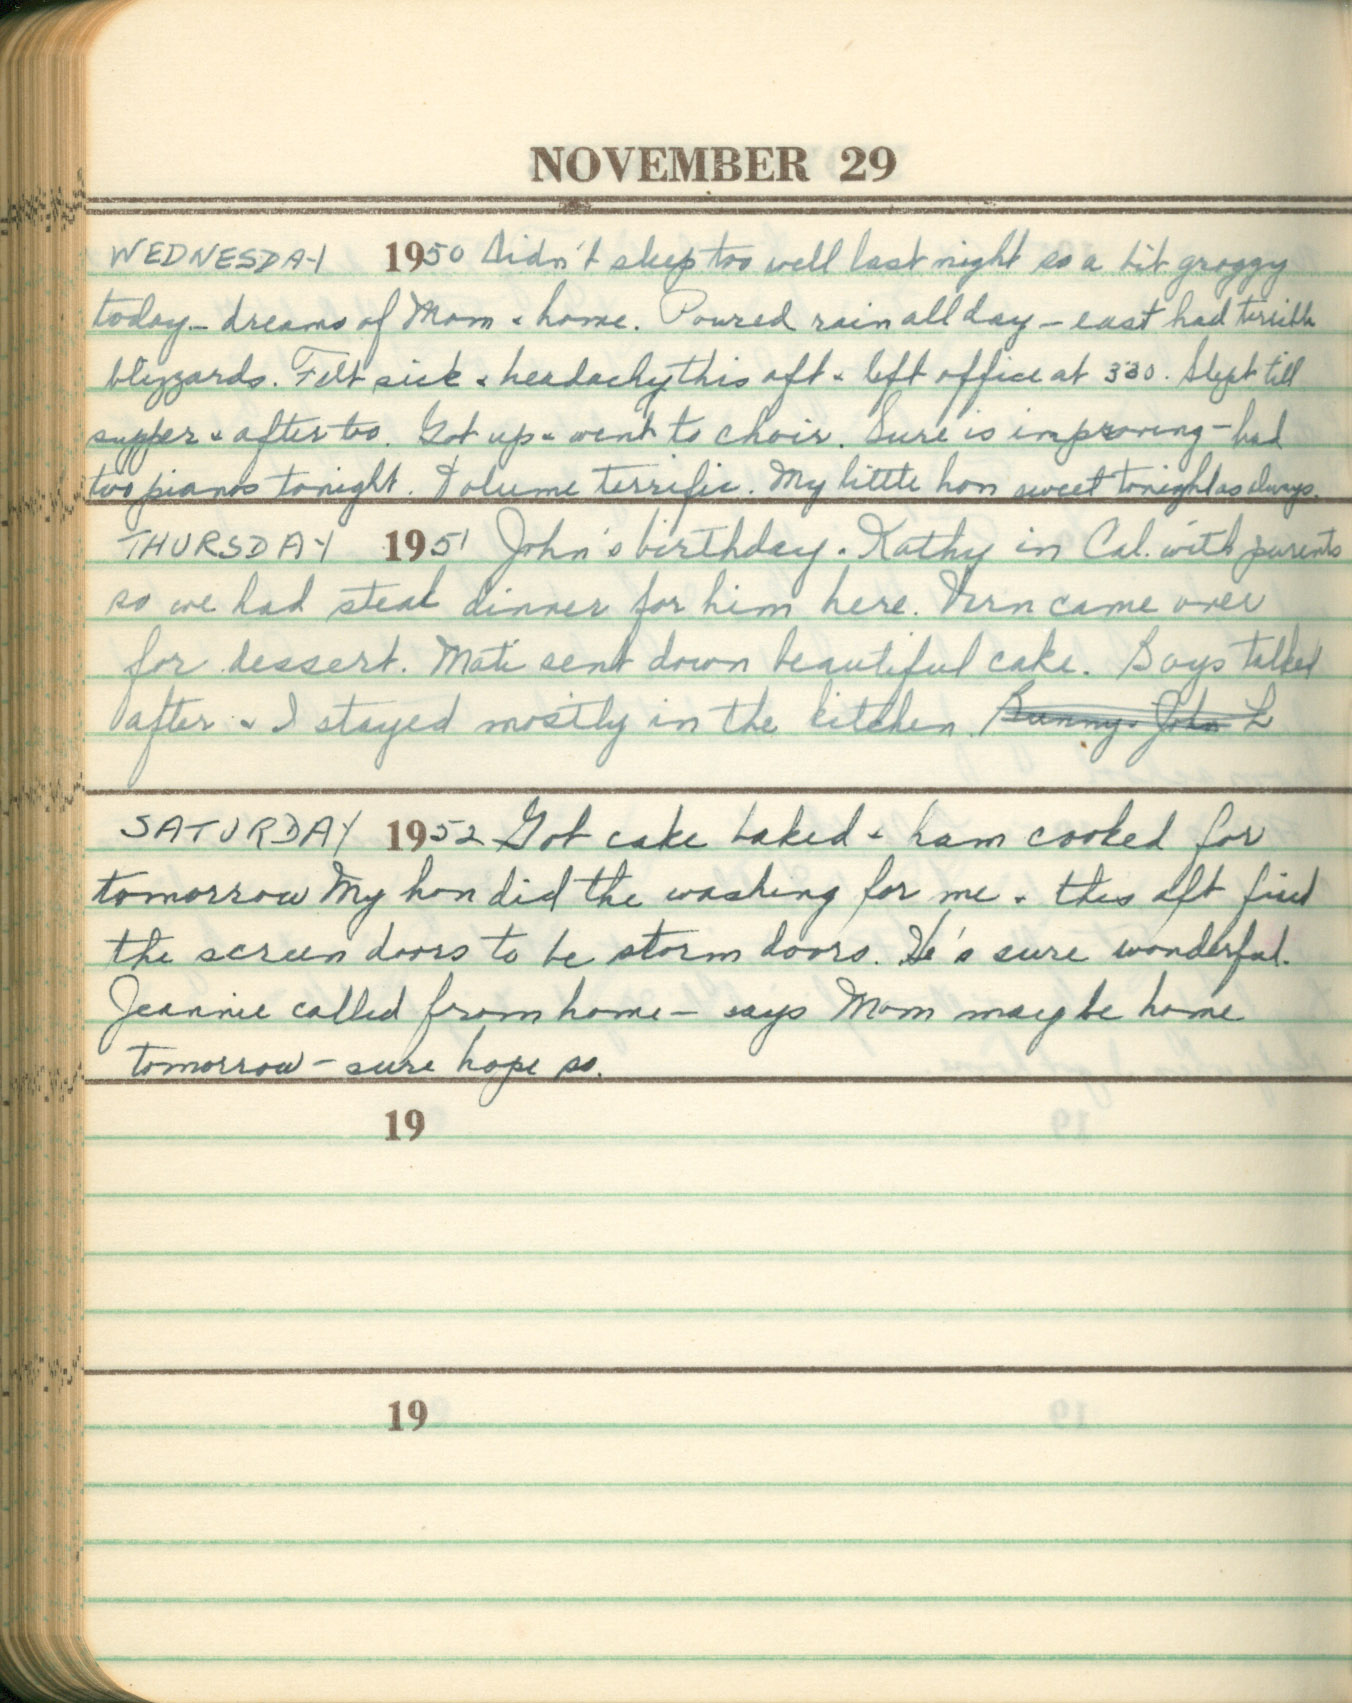 NOVEMBER 29
WEDNESDAY 1950 Didn't sleep too well last night so a bit groggy
today - dreams of Mom & home. Poured rain all day - east had terrible
blizzards. Felt sick & headachy this aft & left office at 330. Slept till
supper & after too. Got up & went to choir. Sure is improving - had
two pianos tonight. Volume terrific. My little hon sweet tonight as always.
THURSDAY 1951 John's birthday. Kathy in Cal. with parents
so we had steak dinner for him here. Vern came over
for dessert. Mati sent down beautiful cake. Boys talked
after & I stayed mostly in the kitchen. Bunny & John L
SATURDAY 1952 Got cake baked & ham cooked for
tomorrow My hon did the washing for me & this aft fixed
the screen doors to be storm doors. He's sure wonderful.
Jeannie called from home - says Mom may be home
tomorrow - sure hope so.
19
19